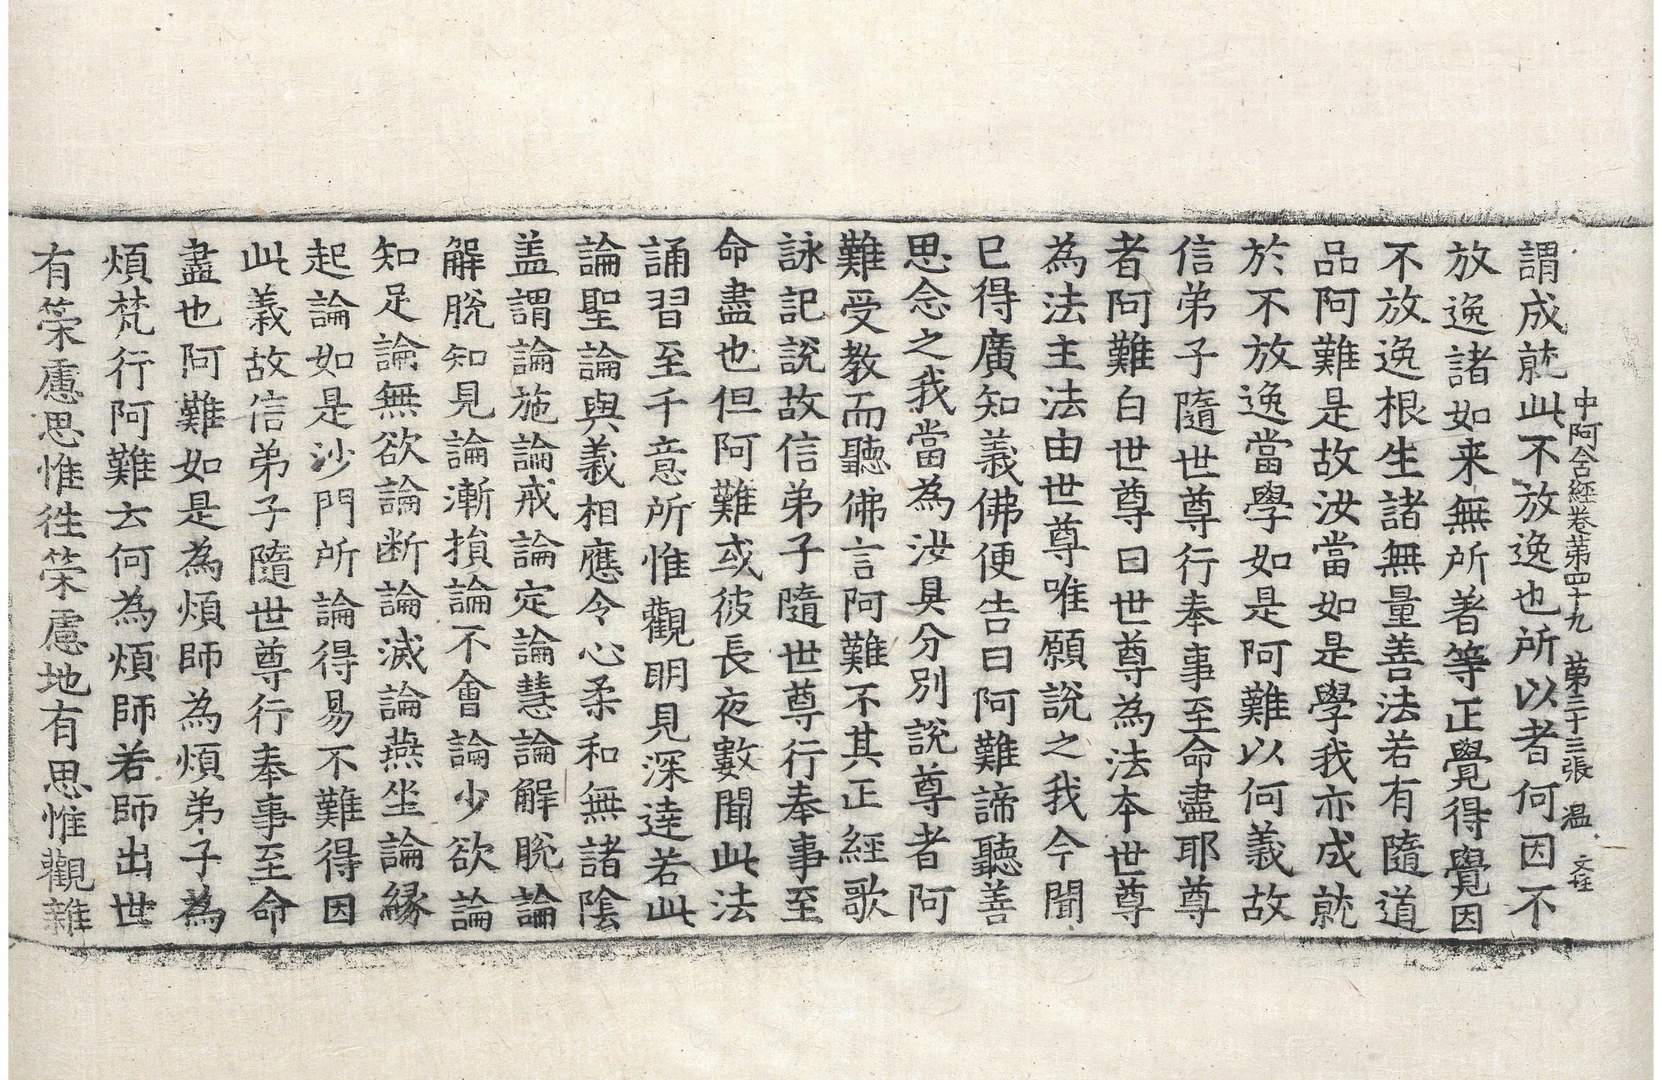 中阿含經卷第四十九 第三十三張 温
謂成就此不放逸也所以者何因不
放逸諸如来無所著等正覺得覺因
不放逸根生諸無量善法若有隨道
品阿難是故汝當如是學我亦成就
於不放逸當學如是阿難以何義故
信弟子隨世尊行奉事至命盡耶尊
者阿難白世尊曰世尊為法本世尊
為法主法由世尊唯願說之我今聞
已得廣知義佛便告曰阿難諦聽善
思念之我當為汝具分別說尊者阿
難受教而聽佛言阿難不其正經歌
詠記說故信弟子隨世尊行奉事至
命盡也但阿難或彼長夜數聞此法
誦習至千意所惟觀明見深達若此
論聖論與義相應令心柔和無諸陰
盖謂論施論戒論定論慧論解脫論
解脫知見論漸損論不會論少欲論
知足論無欲論断論滅論燕坐論緣
起論如是沙門所論得易不難得因
此義故信弟子隨世尊行奉事至命
盡也阿難如是為煩師為煩弟子為
煩梵行阿難云何為煩師若師出世
有策慮思惟徃策慮地有思惟觀雜